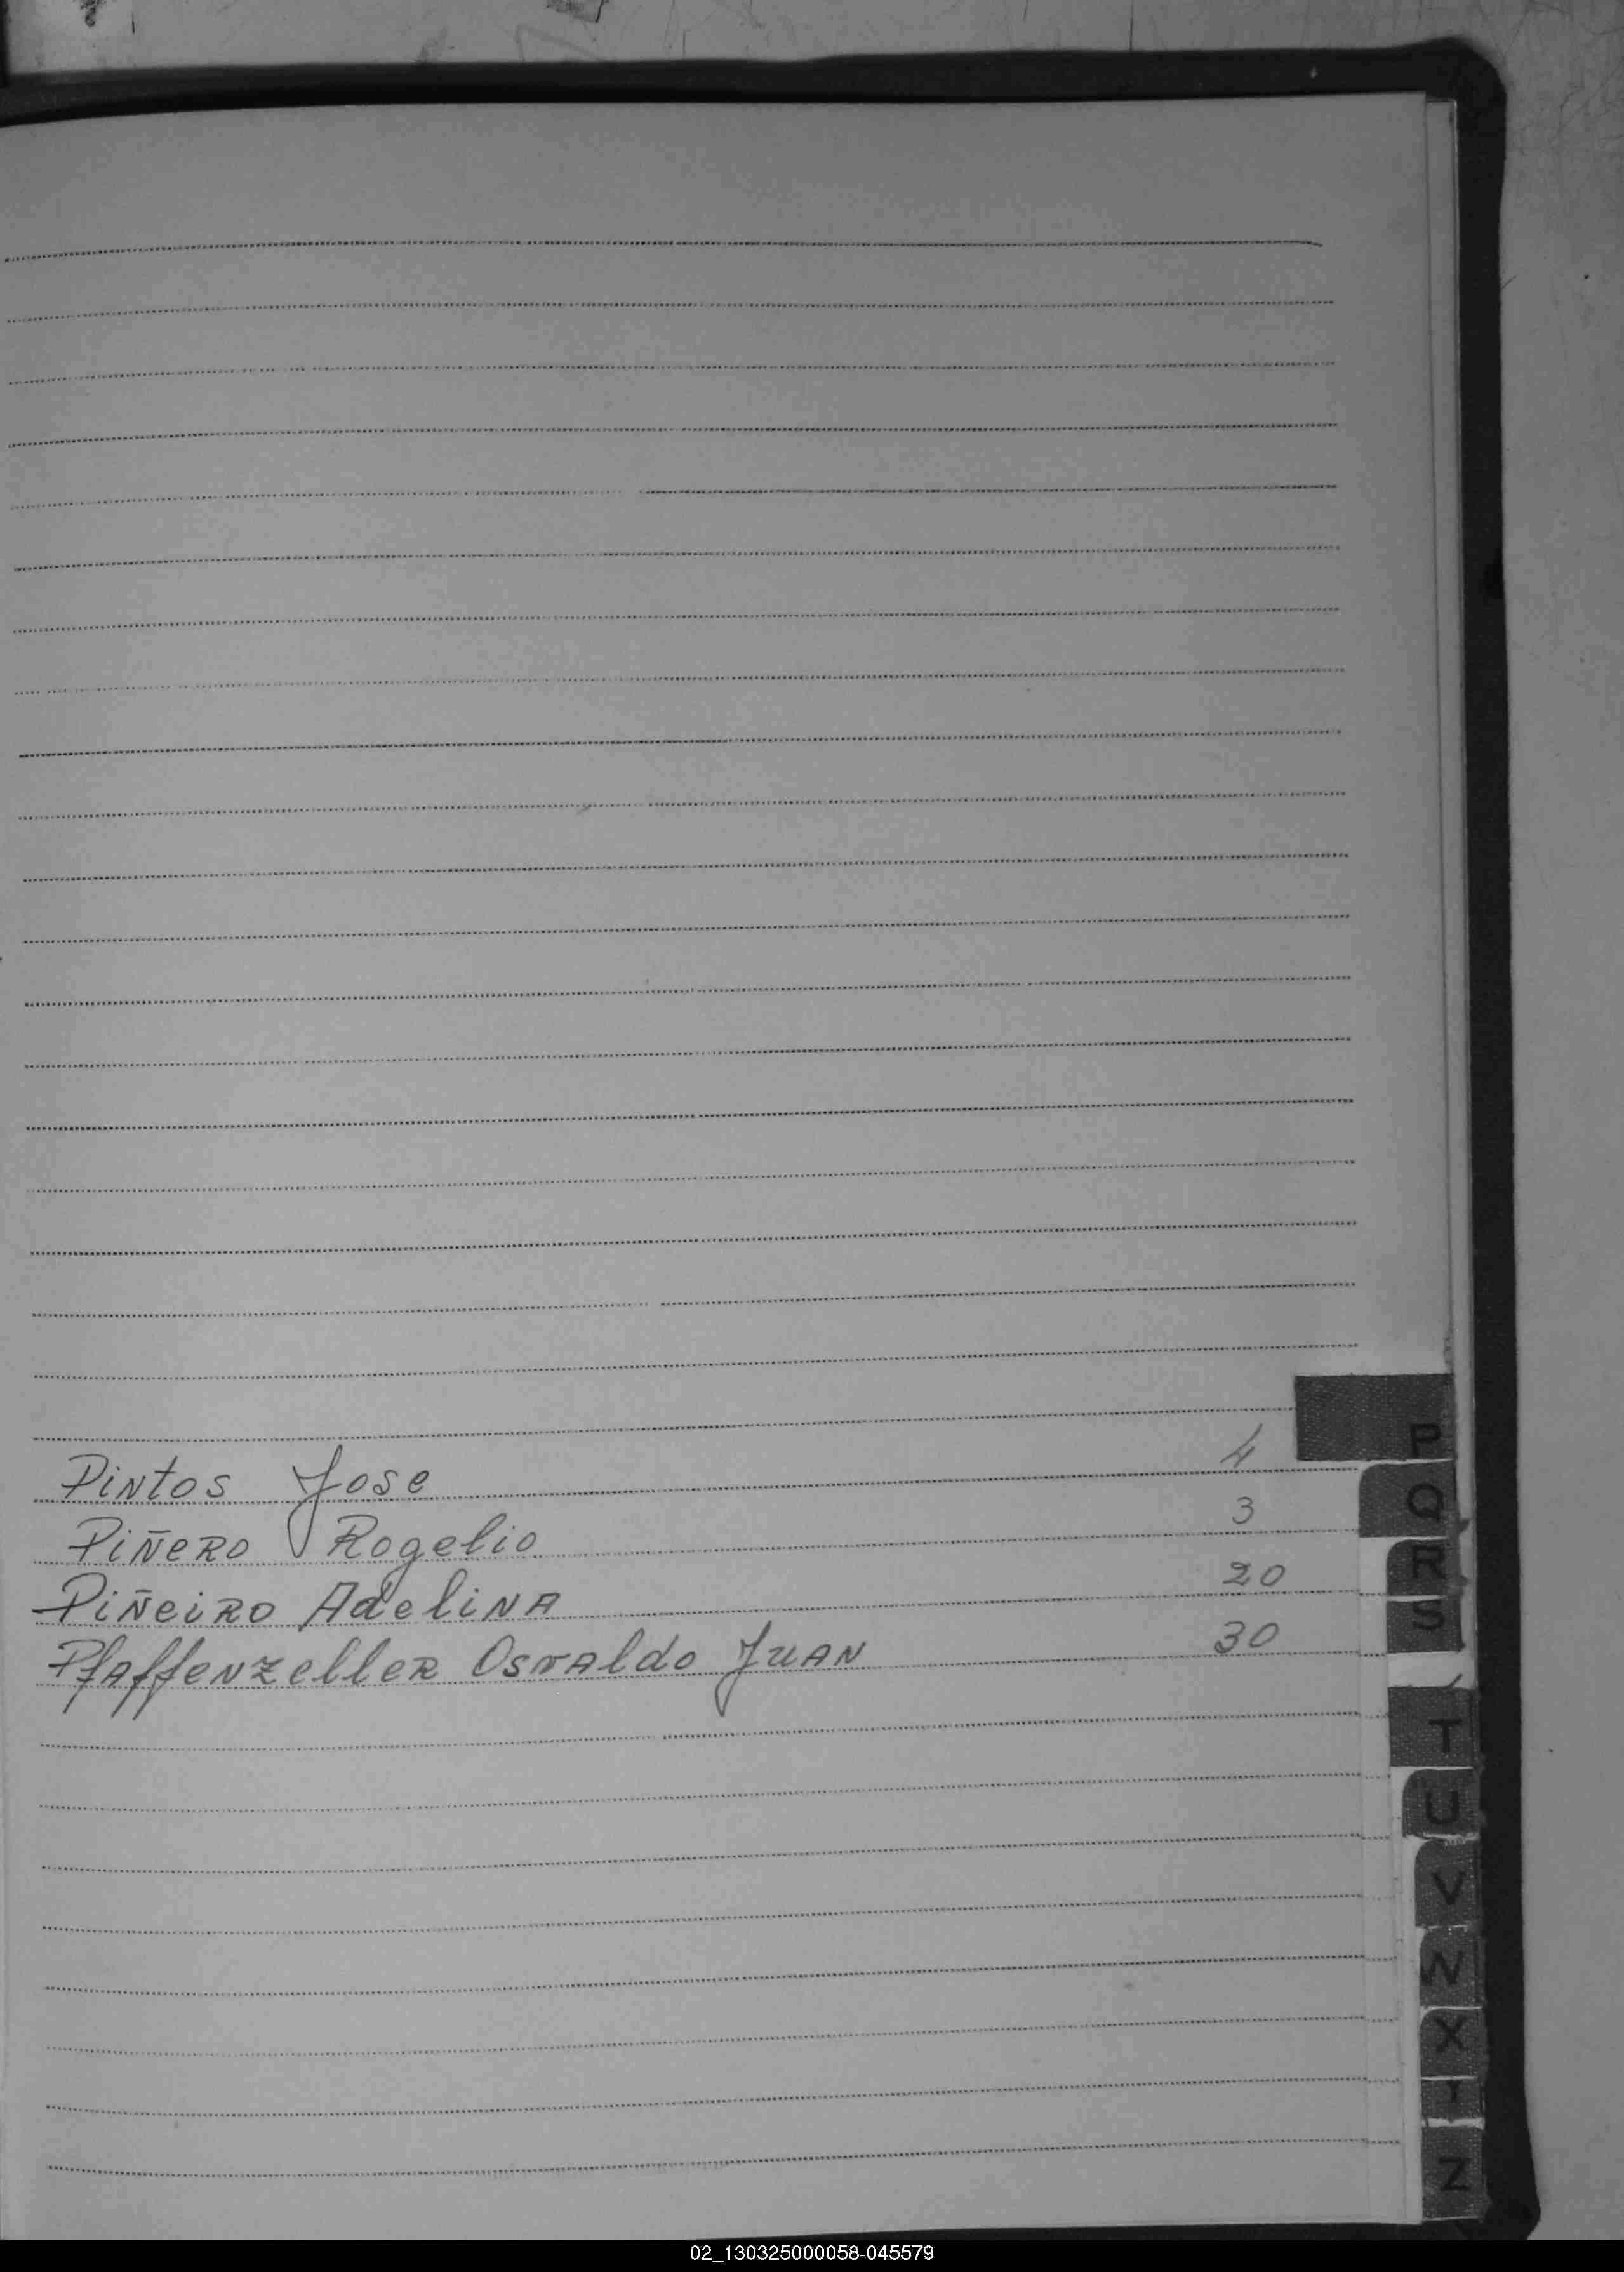 Pintos Jose 4
Piñero Rogelio 3
Piñeiro Adelina 20
Pfaffenzeller Osvaldo Juan 30
P
Q
R
S
T
U
V
W
X
Z
02_130325000058-045579